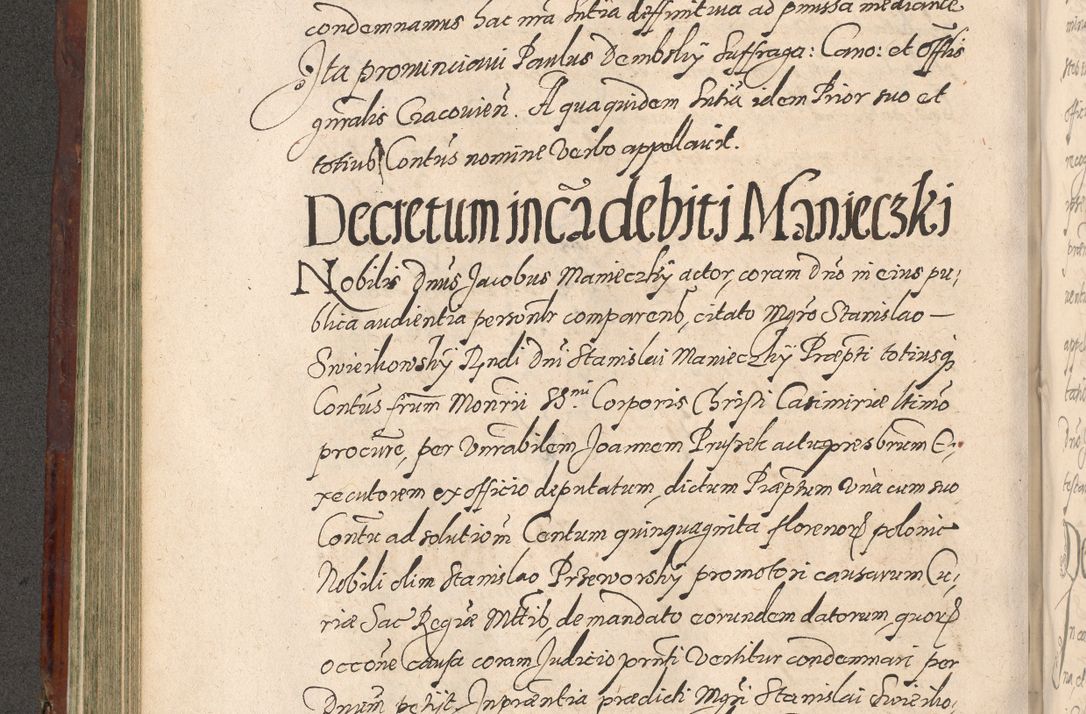 condemnamus hac nra sntia deffinitiva ad pmissa mediante
Ita pronunciavi Paulus Dembskÿ Suffraga: Cano: et offlis
gnralis Cracovien̄. A qua quidem sntia idem Prior suo et
totius Contūs nomine verbo appellavit.
Decretum in cā̄ debiti Manieczki
Nobilis Dnūs Jacobus Manieczkÿ actor, coram Dnō in eius pu,
blica audientia personlr comparens, citato Mgrō Stanislao —
Swierkowskÿ Rndi Dnī Stanislai Manieczkÿ Præpti totiusq
Contūs frum Monrii SS.mi Corporis Christi Casimiriæ ltimō
procure, per Vnrabilem Joannem Prusek actu presbrum E,
xecutorem ex officio deputatum, dictum Præptum unà cum suo
Contu ad solutiom̄ Centum quinquaginta florenor polonic
Nobili olim Stanislao Przeworskÿ promotori causarum Cu,
riæ Sac Regiæ Mttis, de mandato eorundem datorum, quor
occone causa coram Judicio prnti vertitur condemnari per
Dnum petijt. In præntia prædicti Mgri Stanislai Swierko,